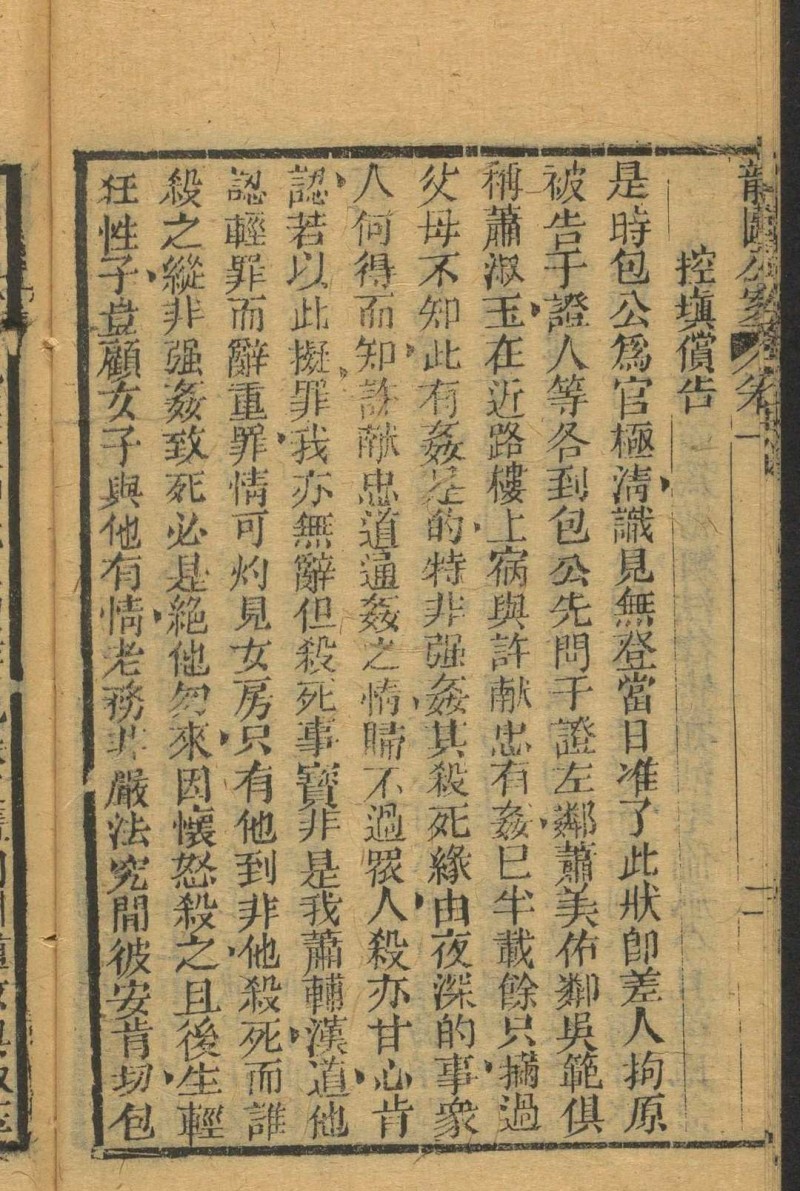 龍圖公案 卷一
控塡償告
是時包公爲官極淸識見無登當日准了此狀卽差人拘原
被告于證人等各到包公先問于證左鄰蕭美佑鄰吳範俱
稱蕭淑玉在近路樓上宿與許献忠有姦已半載餘只撝過
父母不知此有姦是的特非强姦其殺死緣由夜深的事衆
人何得而知許献忠道通姦之情瞞不過衆人殺亦甘心肯
認若以此擬罪我亦無辭但殺死事實非是我蕭輔漢道他
認輕罪而辭重罪情可灼見女房只有他到非他殺死而誰
殺之縱非强姦致死必是絕他勿來因懷怒殺之且後生輕
狂性子豈顧女子與他有情老務非嚴法究問彼安肯切包